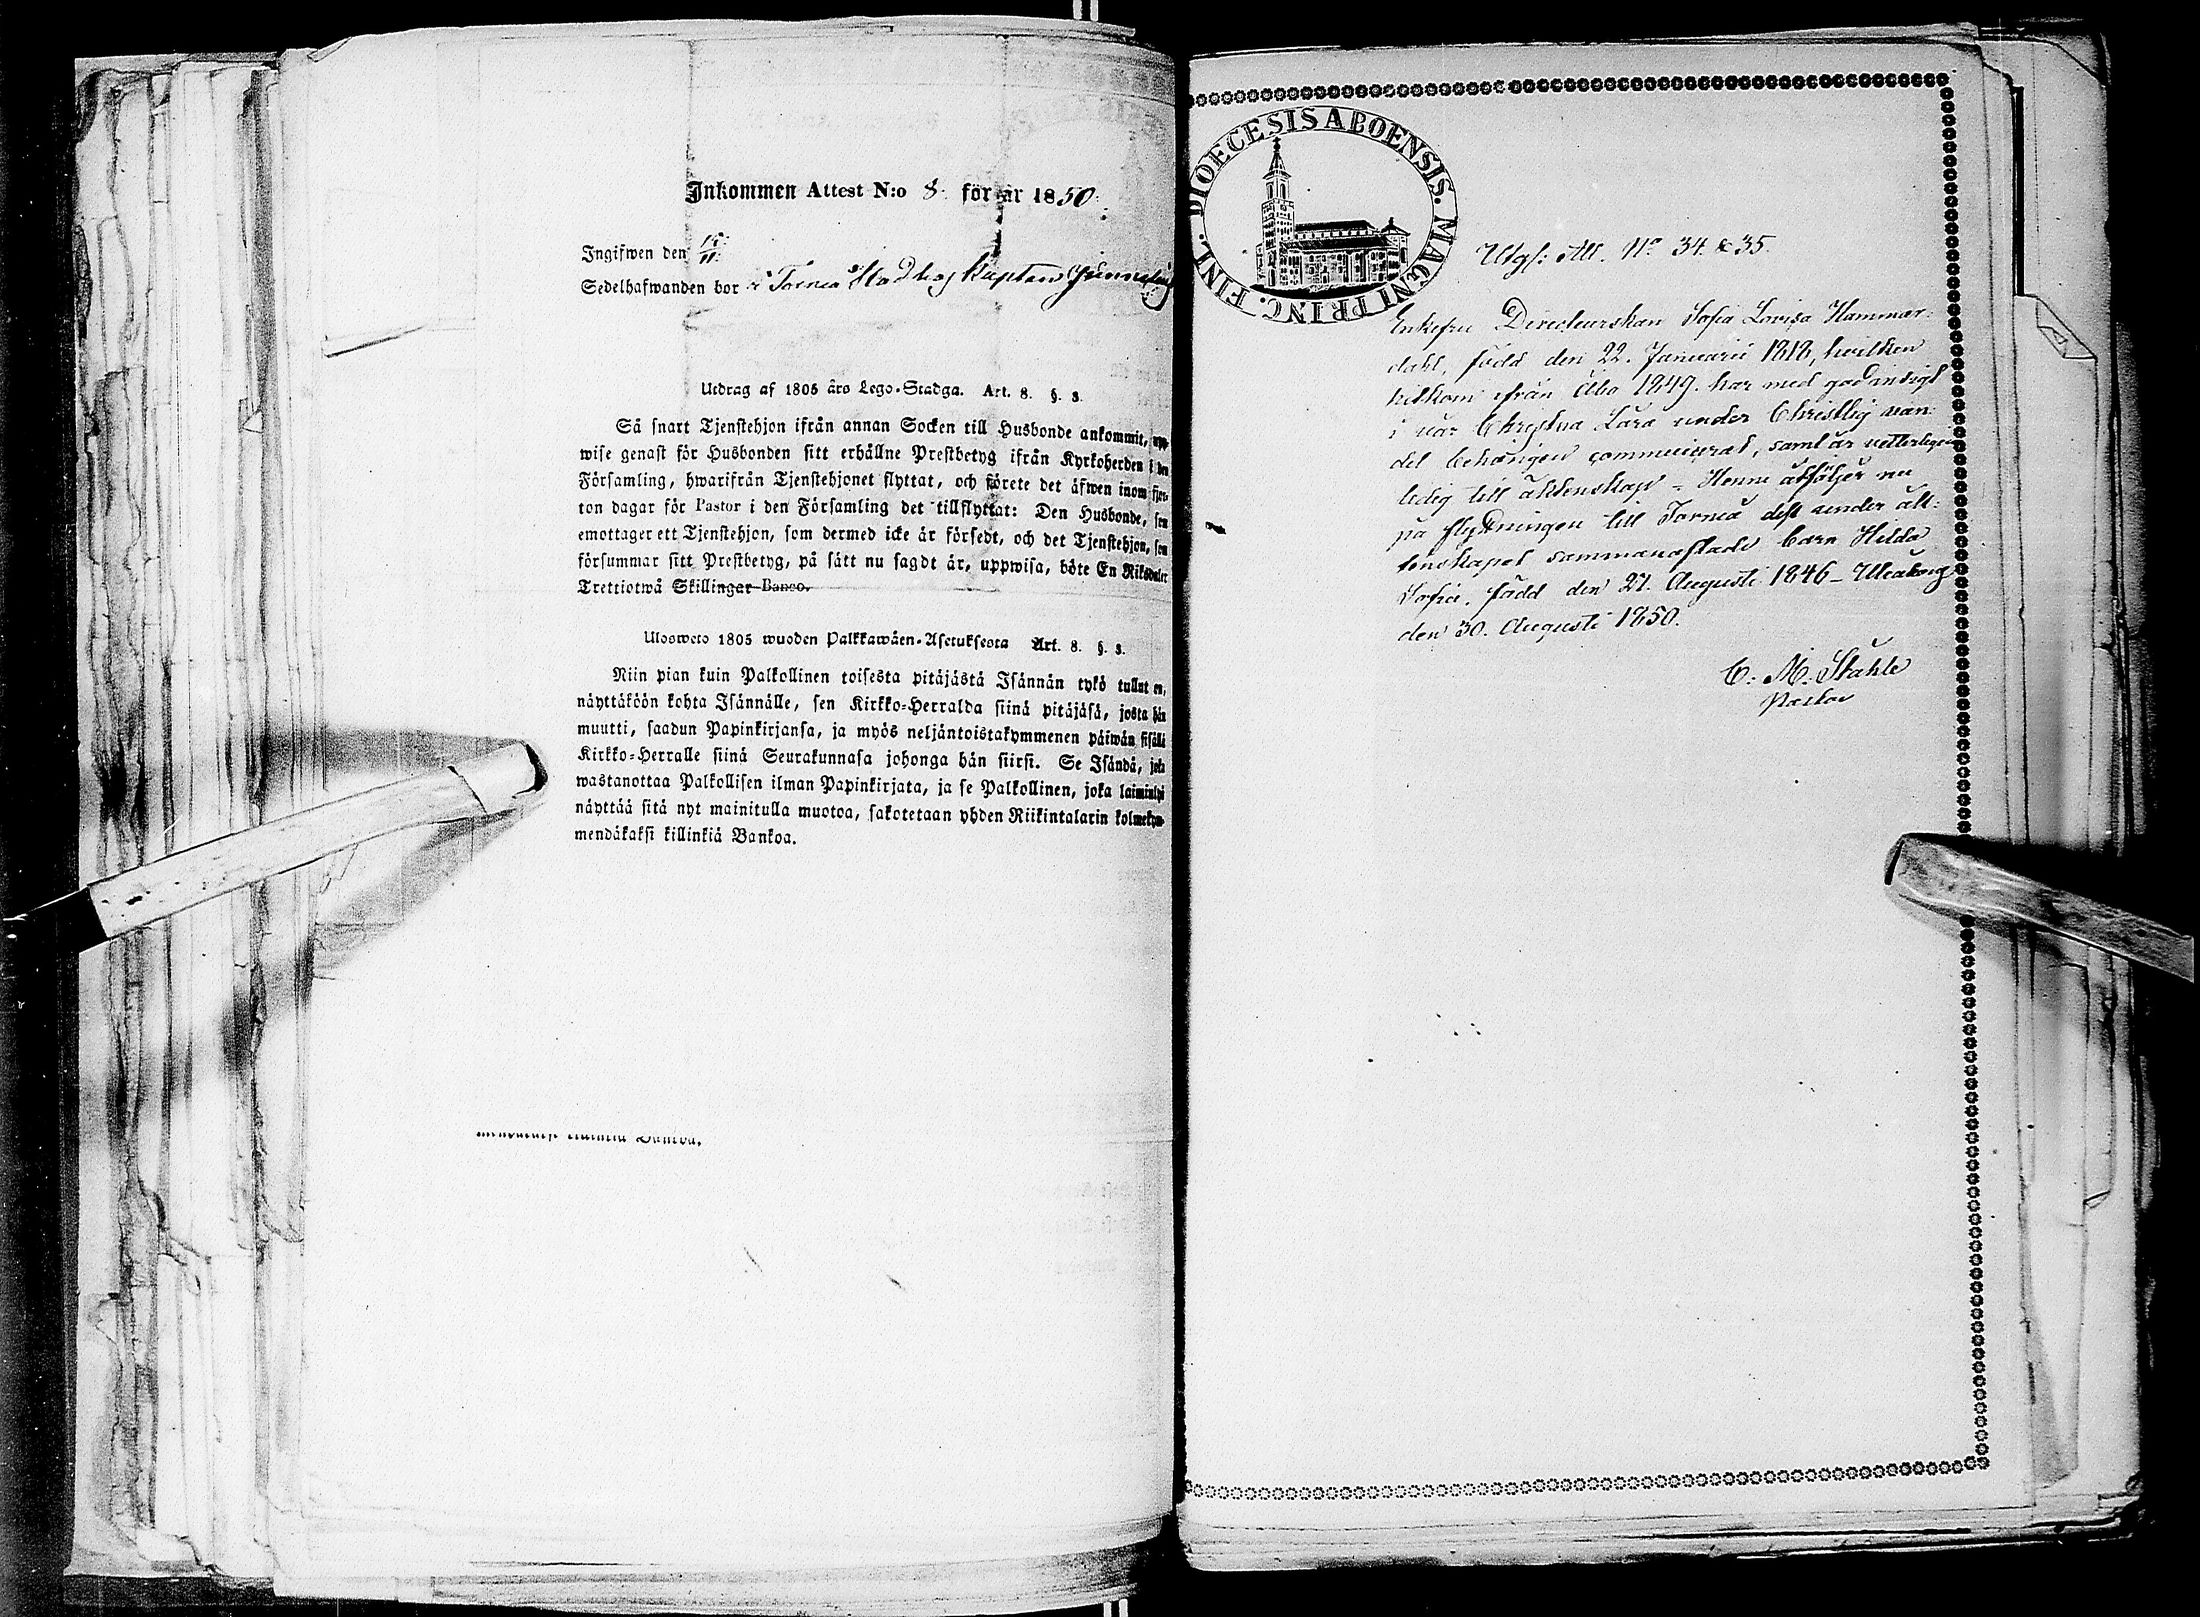 Inkommen Attest N:o 8. för år 1850.
Ingifwen den 15/11
Sedelhafwanden bor i Torneå Stad hos Kapten
Utdrag af 1805 års Lego-Stadga. Art. 8. §. 3.
Så snart Tjenstehjon ifrån annan Socken till Husbonde ankommit, upp-
wise genast för Husbonden sitt erhållne Prestbetyg ifrån Kyrkoherden i den
Församling, hwarifrån Tjenstehjonet flyttat, och förete det äfwen inom fjor-
ton dagar för Pastor i den Församling det tillflyttat: Den Husbonde, som
emottager ett Tjenstehjon, som dermed icke är försedt, och det Tjenstehjon, som
försummar sitt Prestbetyg, på sätt nu sagdt är, uppwisa, böte En Riksdaler
Trettiotwå Skillingar Banco.
Uloswеto 1805 wuoden Palkkawäen-Asetuksesta Art. 8. §. 3.
Niin pian kuin Palkollinen toisesta pitäjästä Isännän tykö tullut on,
näyttäköön kohta Isännälle, sen Kirkko-Herralda siinä pitäjäsä, josta hän
muutti, saadun Papinkirjansa, ja myös neljäntoistakymmenen päiwän sisällä
Kirkko-Herralle siinä Seurakunnasa johonga hän siirsi. Se Isändä, joka
wastanottaa Palkollisen ilman Papinkirjata, ja se Palkollinen, joka laiminlyö
näyttää sitä nyt mainitulla muotoa, sakotetaan yhden Riikintalarin kolmekym-
mendäkaksi killinkiä Bankoa.
mendäkaksi killinkiä Bankoa.
DIOECESIS ABOENSIS. MAGNI PRINC. FINL.
Utgf: Att. No 34. & 35.
Enkefru Directeurskan Sofia Lovisa Hammar-
dahl, född den 22. Januarii 1818, hvilken
hitkom ifrån Åbo 1849. har med god insigt
i vår Christna Lära under Christlig van-
del behörigen communicerat, samt är vetterligen
ledig till äktenskap - Henne åtföljer nu
på flyttningen till Torneå dess under äk-
tenskapet sammanaflade barn Hilda
Sofia, född den 27. Augusti 1846 - Uleåborg
den 30. Augusti 1850.
C. M. Ståhle
Pastor